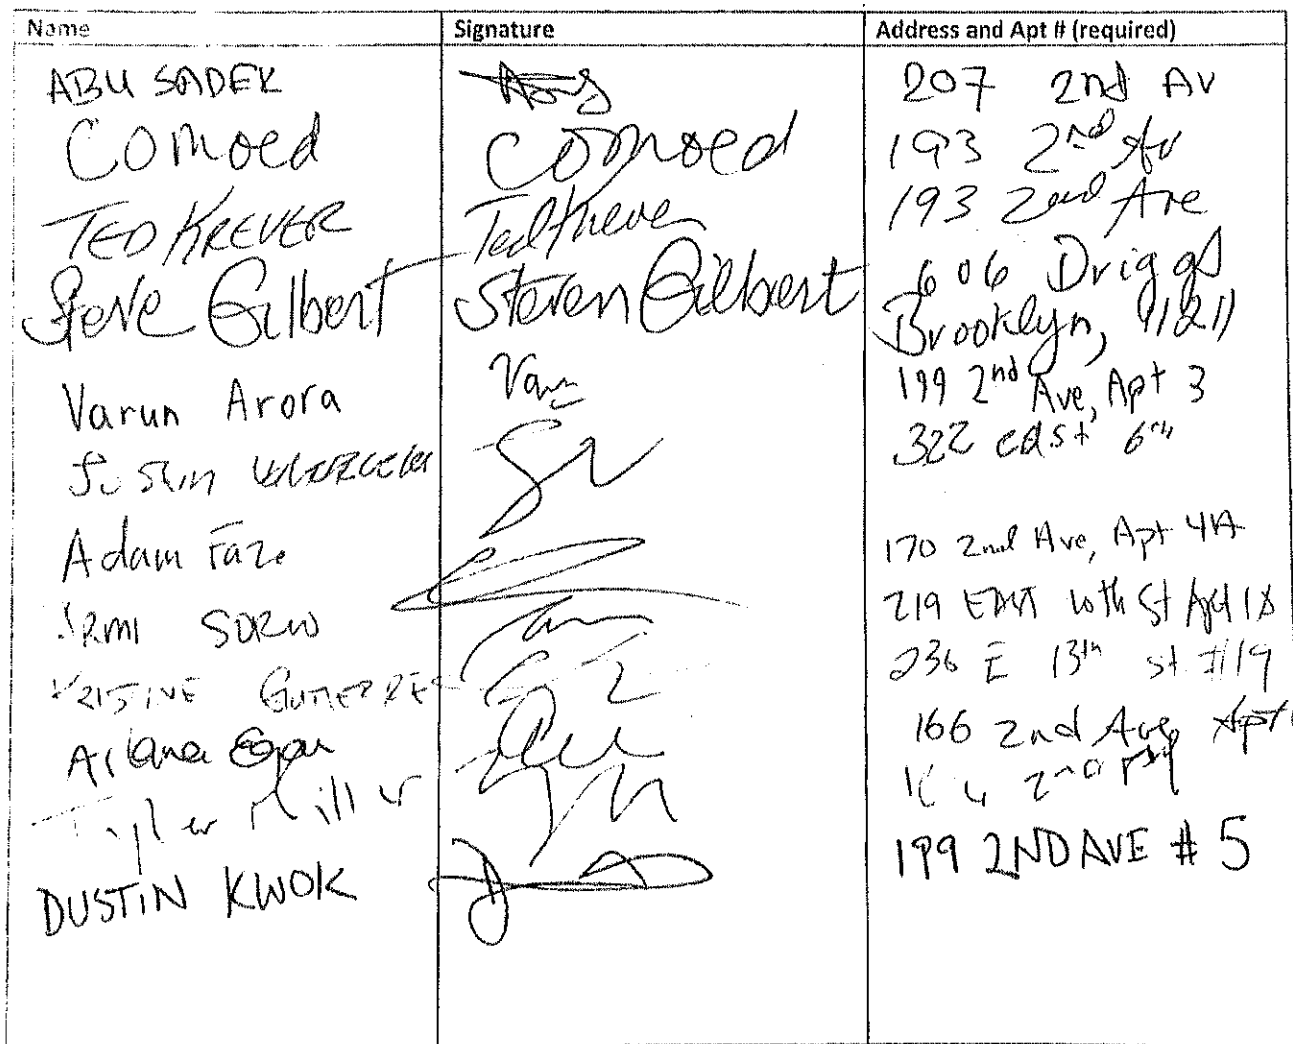 Name Signature Address and Apt # (required)
ABU SADEK 207 2nd AV
Comoed Comoed 193 2nd Av
TED KREVER Ted Krever 193 2nd Ave
Steve Gilbert Steven Gilbert 606 Driggs
Brooklyn, 11211
Varun Arora Varun 199 2nd Ave, Apt 3
Justin 322 east 6th
Adam Faze 170 2nd Ave, Apt 4A
SORIO 219 EAST 10th St Apt
KRISTINE GUTIERREZ 236 E 13th St #19
Ariana Egan 166 2nd Ave Apt
Tyler Miller 2nd
DUSTIN KWOK 199 2ND AVE # 5